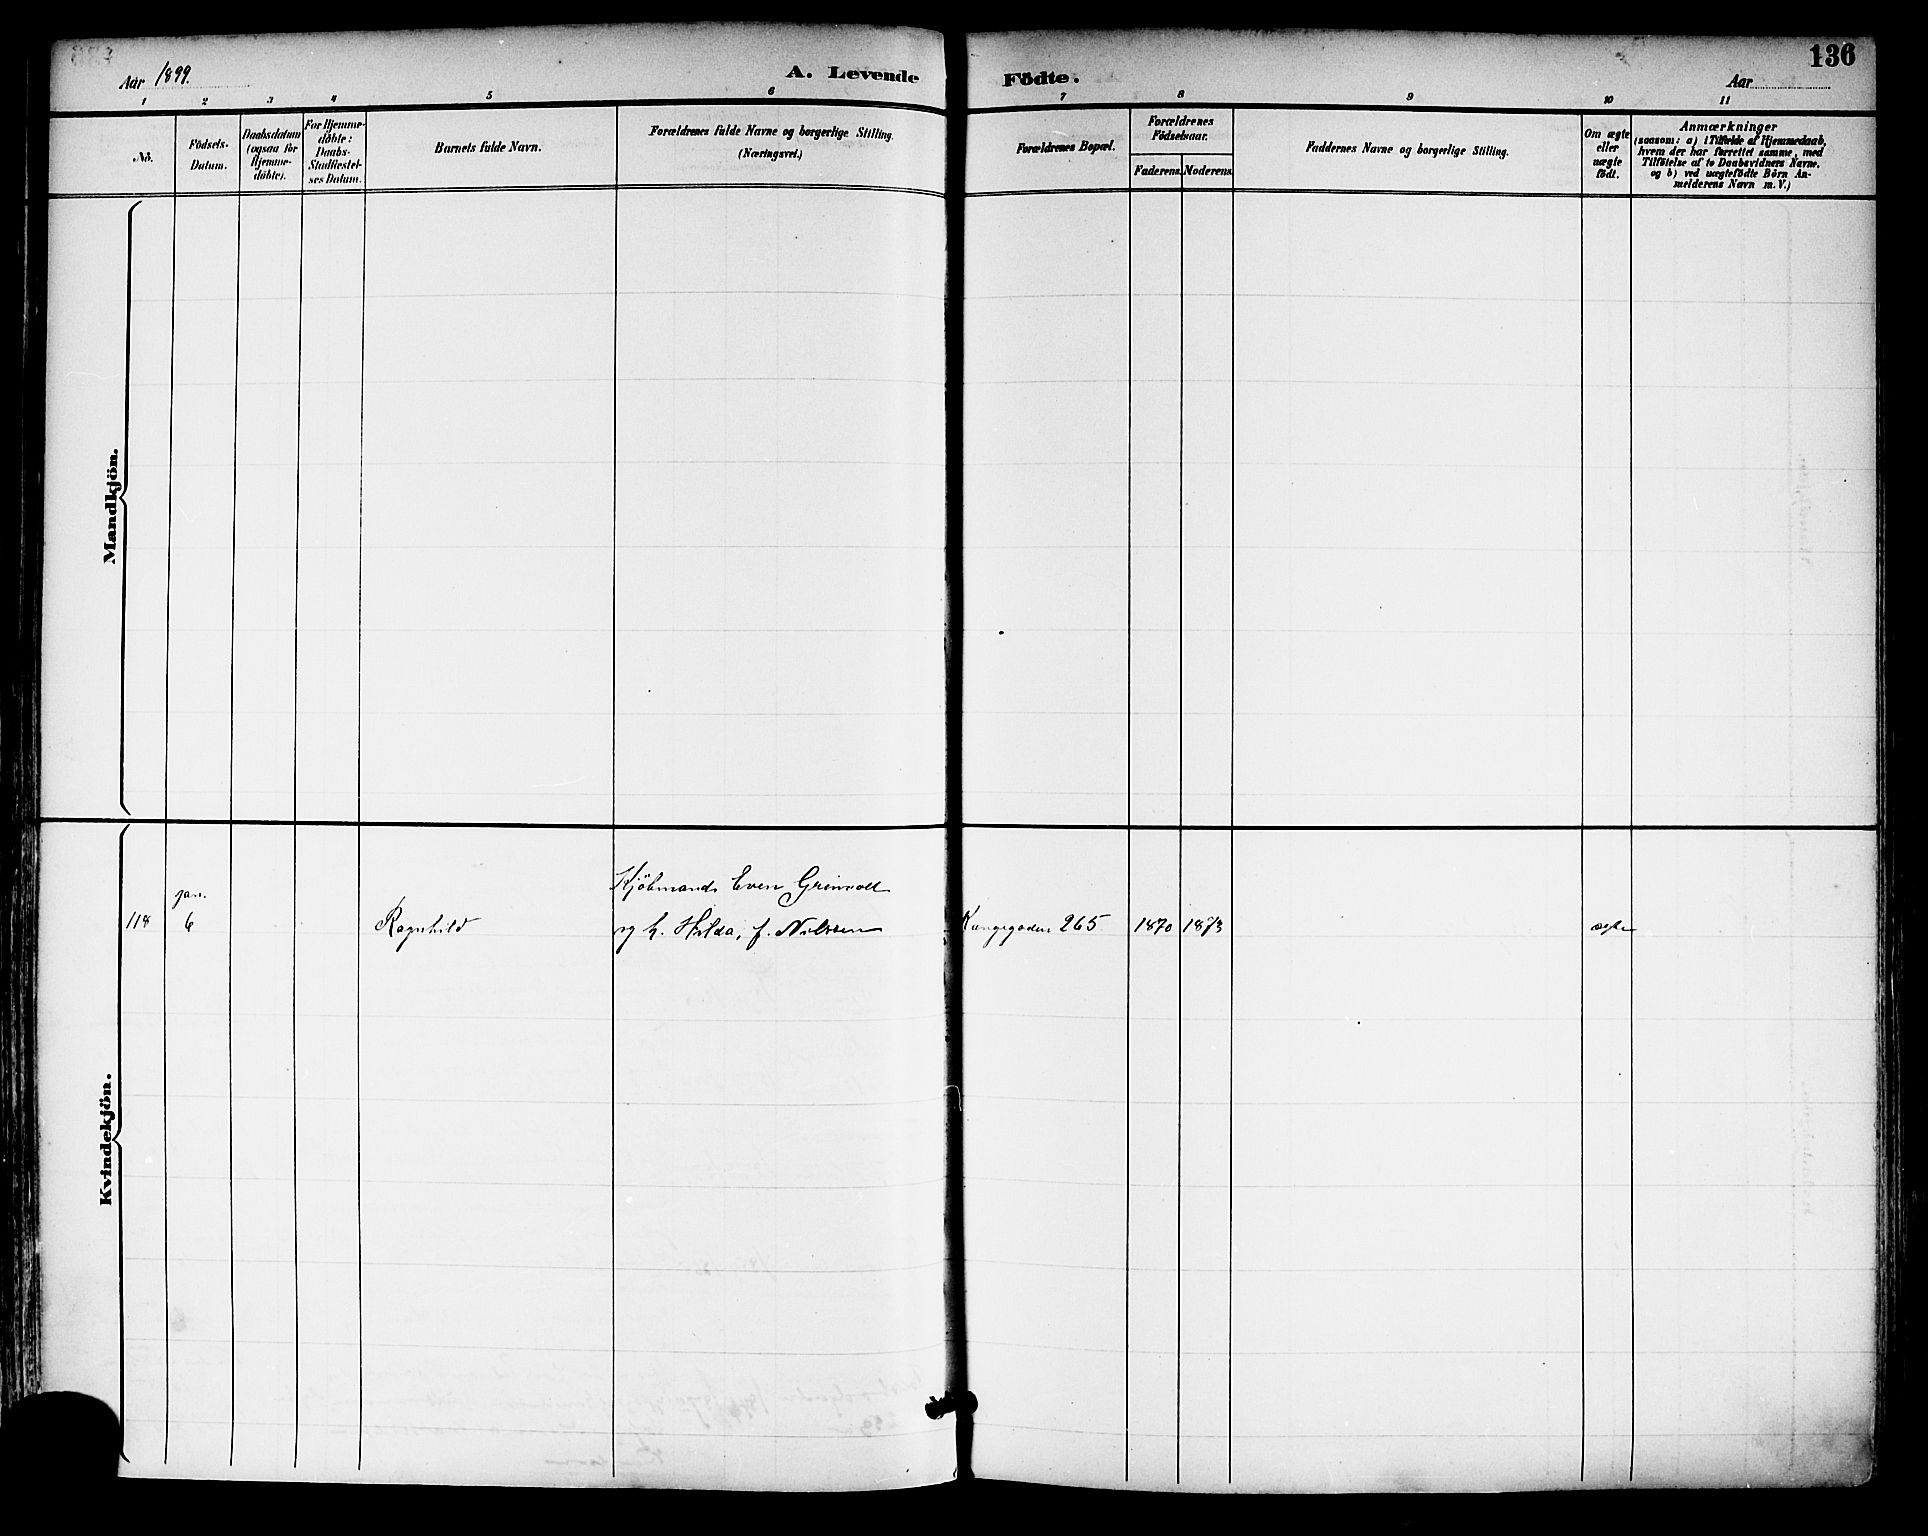 136
Aar 1899.
A. Levende
Födte.
Aar
1 2 3 4 5 6 7 8 9 10 11
Nö.
Födsels-
Datum.
Daabsdatum
(ogsaa for
Hjemme-
döbte).
For Hjemme-
döbte:
Daabs-
Stadfæstel-
ses Datum.
Barnets fulde Navn.
Forældrenes fulde Navne og borgerlige Stilling.
(Næringsvei.)
Forældrenes Bopæl.
Forældrenes
Födselsaar.
Faderens. Moderens.
Faddernes Navne og borgerlige Stilling.
Om ægte
eller
uægte
födt.
Anmærkninger
(saasom: a) i Tilfælde af Hjemmedaab,
hvem der har forrettet samme, med
Tilföielse af to Daabsvidners Navne.
og b) ved uægtefödte Börn An-
melderens Navn m. V.)
Mandkjön.
Kvindekjön.
Kjöbmand Even Grinvoll
Jan.
118 6 Ragnhild og h. Hilda, f. Nilssen Kongegaden 265 1870 1873 ægte